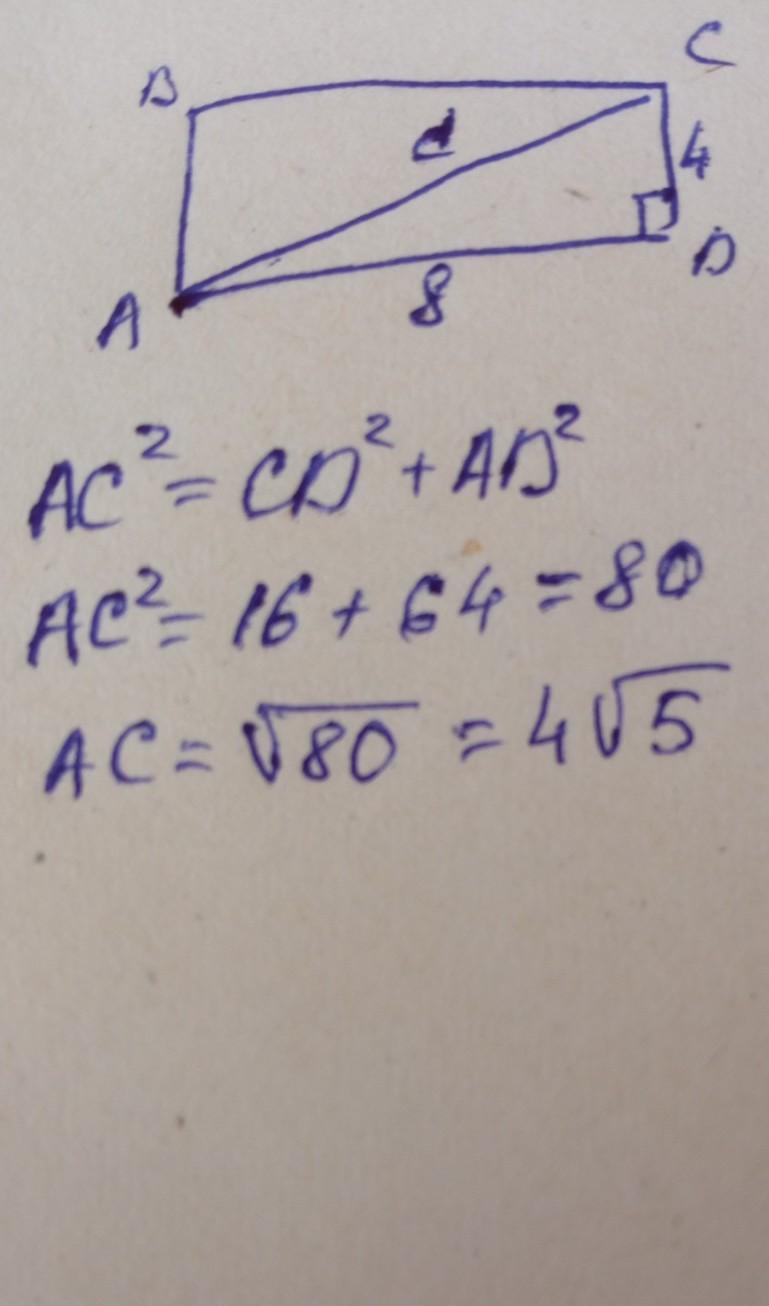 B
C
d
4
A
8
D
AC² = CD² + AD²
AC² = 16 + 64 = 80
AC = √80 = 4√5